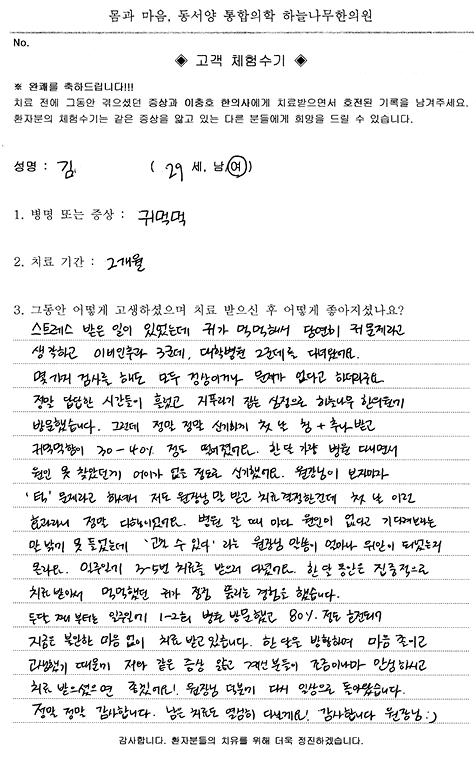 몸과 마음, 동서양 통합의학 하늘나무한의원
No.
◈ 고객 체험수기 ◈
※ 완쾌를 축하드립니다!!!
치료 전에 그동안 겪으셨던 증상과 이충호 한의사에게 치료받으면서 호전된 기록을 남겨주세요.
환자분의 체험수기는 같은 증상을 앓고 있는 다른 분들에게 희망을 드릴 수 있습니다.
성명 : 김 ( 29 세, 남,여)
1. 병명 또는 증상 : 귀먹먹
2. 치료 기간 : 2개월
3. 그동안 어떻게 고생하셨으며 치료 받으신 후 어떻게 좋아지셨나요?
스트레스 받은 일이 있었는데 귀가 먹먹해서 당연히 귀문제라고
생각하고 이비인후과 3군데, 대학병원 2군데를 다녀왔어요.
몇가지 검사를 해도 모두 정상이거나 문제가 없다고 하더라구요
정말 답답한 시간들이 흘렀고 지푸라기 잡는 심정으로 하늘나무 한의원가
방문했습니다. 그런데 정말 정말 신기하게 첫 날 침 + 추나 받고
귀먹먹함이 30-40% 정도 떨어졌어요. 한 달 가량 병원 다니면서
원인 못 찾았던게 어이가 없을 정도로 신기했어요. 원장님이 보자마자
'턱' 문제라고 하셔서 저도 원장님 말 믿고 치료 결정한건데 첫 날 이런
효과라니 정말 다행이었어요. 병원 갈 때 마다 원인이 없다고 기다려보라는
말 밖게 못 들었는데 '고칠 수 있다' 라는 원장님 말씀이 얼마나 위안이 되었는지
몰라요. 일주일에 3-5번 치료를 받으러 다녔어요. 한 달 동안은 집중적으로
치료 받아서 먹먹했던 귀가 점점 뚫리는 경험도 했습니다.
두달 째 부터는 일주일에 1-2회 병원 방문했고 80% 정도 호전되어
지금은 불안한 마음 없이 치료 받고 있습니다. 한 달을 방황하며 마음 졸이고
고생했기 때문에 저와 같은 증상 앓고 계신 분들이 조금이나마 안심하시고
치료 받으셨으면 좋겠어요! 원장님 덕분에 다시 일상으로 돌아왔습니다.
정말 정말 감사합니다. 남은 치료도 열심히 다닐게요! 감사합니다 원장님 :)
감사합니다. 환자분들의 치유를 위해 더욱 정진하겠습니다.